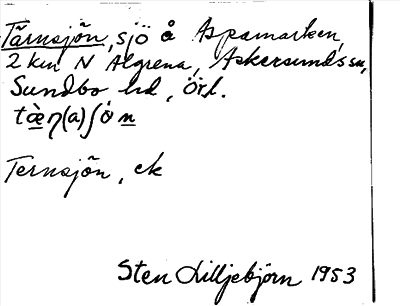 Tärnsjön, sjö å Aspamarken,
2 km N Algrena, Askersunds sn,
Sundbo hd, Örl.
Ternsjön, ek
Sten Lilljebjörn 1953